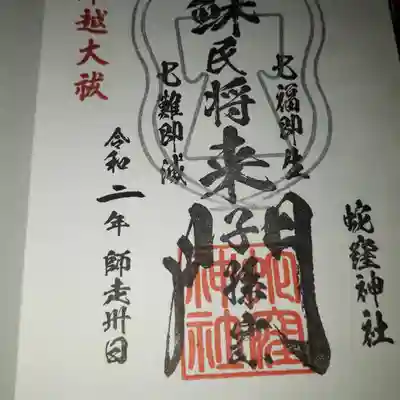 蛇窪神社
七福即生
蘇民将来子孫門
七難即滅
令和二年 師走卅日
年越大祓
蛇窪神社